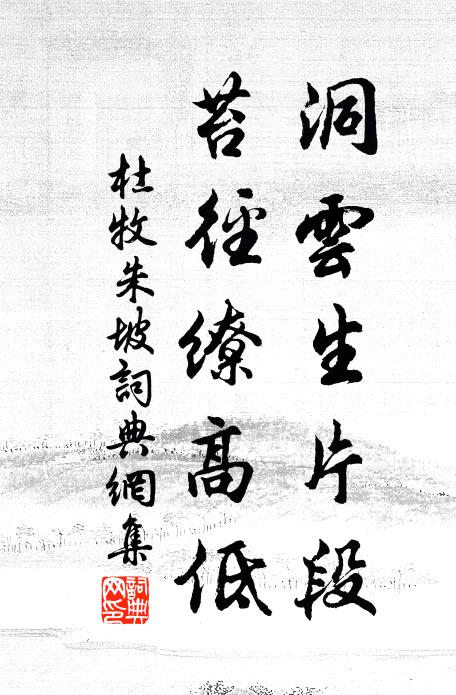 洞雲生片段
苔徑繚高低
杜牧朱坡詞典網集
詞典网印